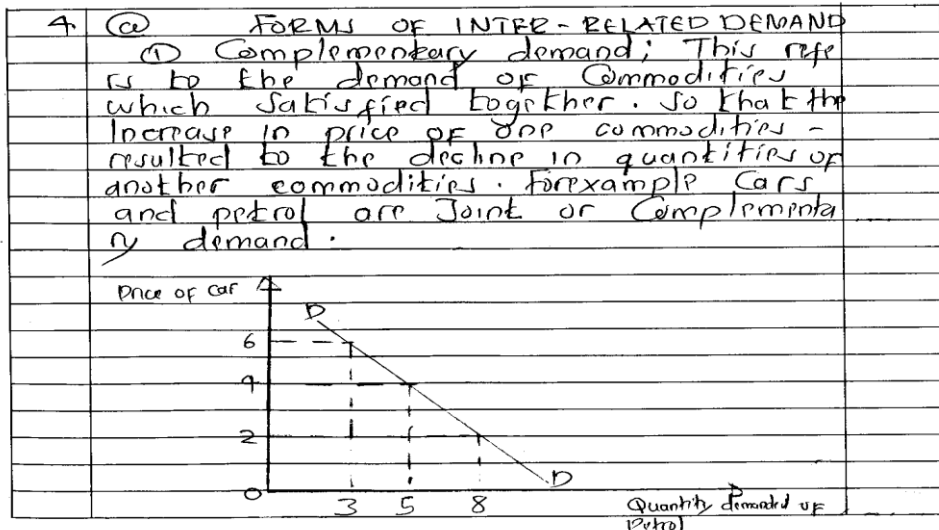 4 (a) FORMS OF INTER-RELATED DEMAND
(1) Complementary demand; This refe
rs to the demand of Commodities
which satisfied together. so that the
Increase in price of one commodities -
resulted to the decline in quantities of
another commodities. forexample Cars
and petrol are Joint or Complementa
ry demand.
Price of car
D
6
4
2
0
D
3 5 8
Quantity demanded of
Petrol